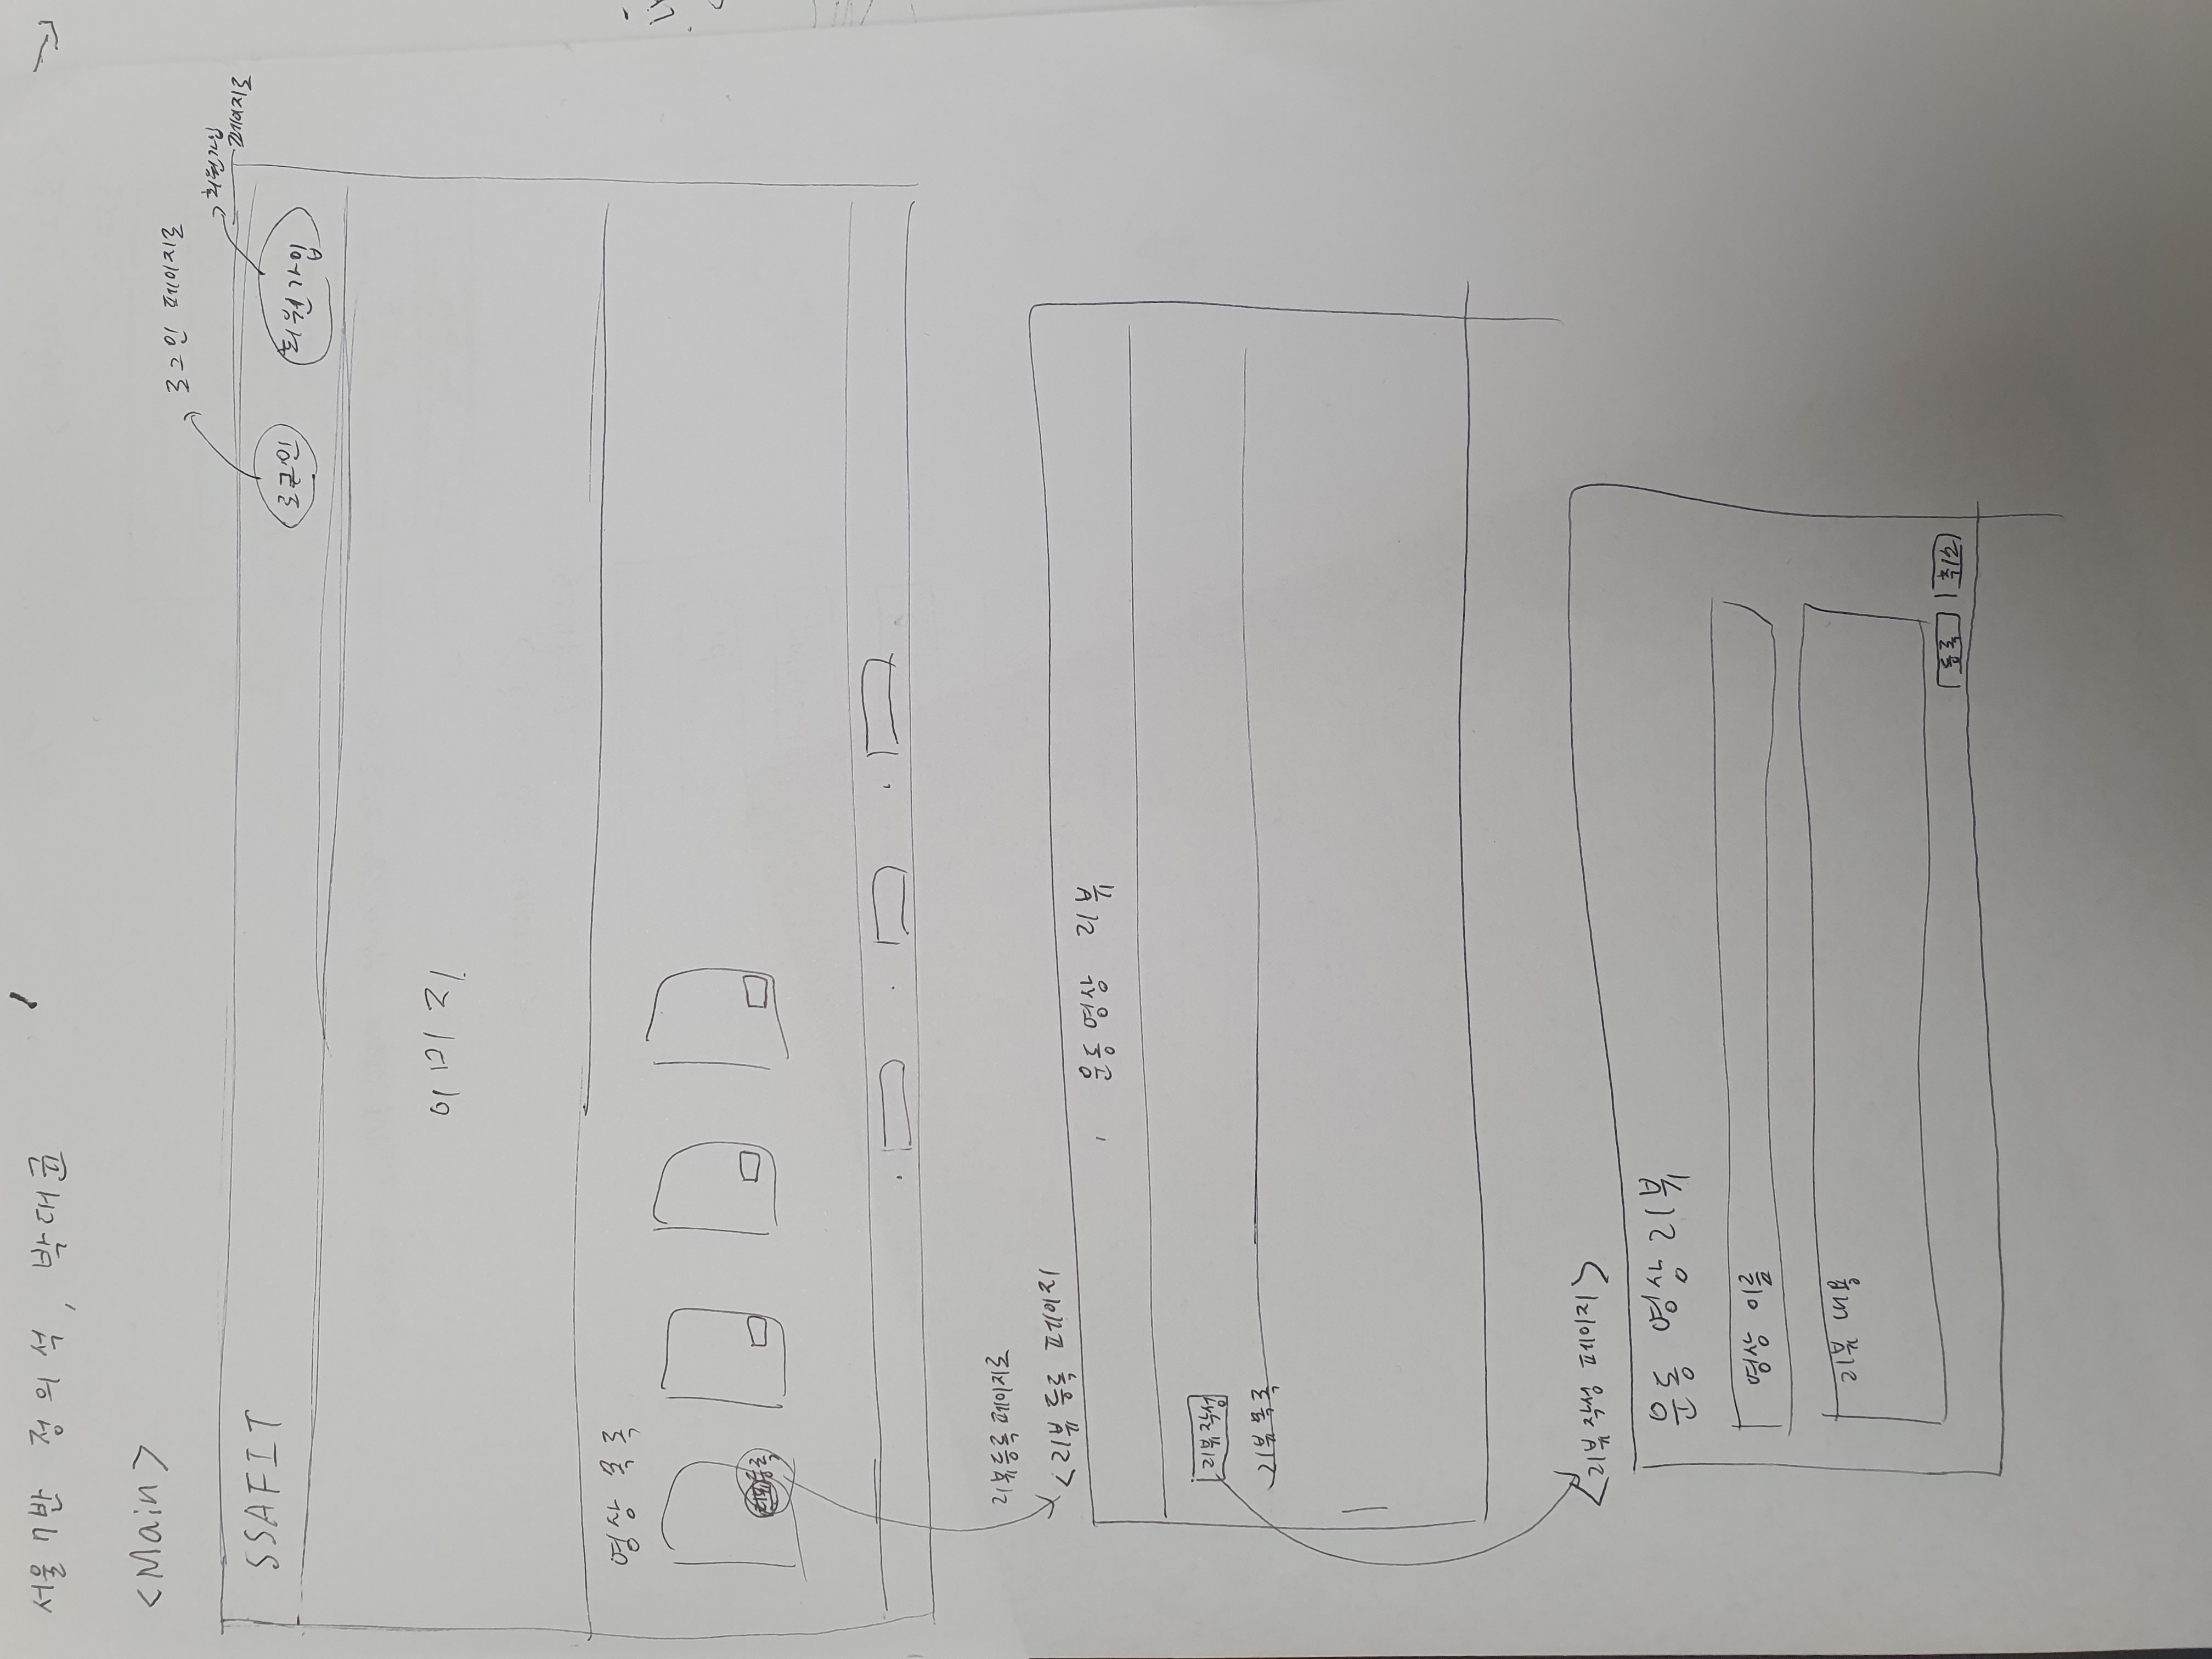 서울 7반 정의석, 박대균
<Main>
로그인 페이지로
회원가입
페이지로
SSAFIT
로그인
회원가입
이미지
영상 목록
등록
리뷰등록 페이지로
<리뷰 등록 페이지
운동영상 리뷰
리뷰작성
리뷰목록
<리뷰작성 페이지>
운동 영상 리뷰
영상 이름
리뷰 내용
등록 취소